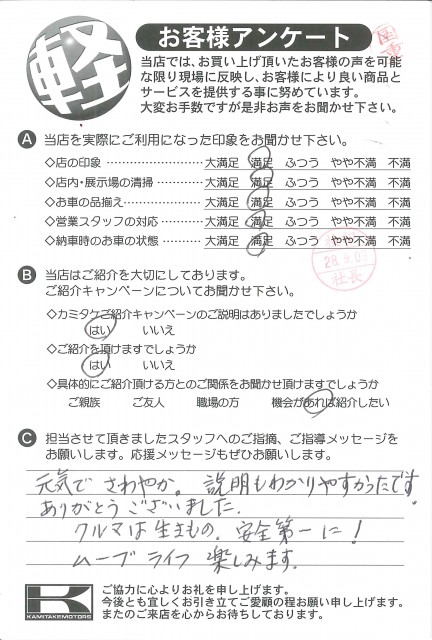 軽
お客様アンケート
当店では、お買い上げ頂いたお客様の声を可能
な限り現場に反映し、お客様により良い商品と
サービスを提供する事に努めています。
大変お手数ですが是非お声をお聞かせ下さい。
A 当店を実際にご利用になった印象をお聞かせ下さい。
◇店の印象 ………………… 大満足 満足 ふつう やや不満 不満
◇店内・展示場の清掃 ………… 大満足 満足 ふつう やや不満 不満
◇お車の品揃え ……………… 大満足 満足 ふつう やや不満 不満
◇営業スタッフの対応 ………… 大満足 満足 ふつう やや不満 不満
◇納車時のお車の状態 ………… 大満足 満足 ふつう やや不満 不満
社長
B 当店はご紹介を大切にしております。
ご紹介キャンペーンについてお聞かせ下さい。
◇カミタケご紹介キャンペーンのご説明はありましたでしょうか
はい いいえ
◇ご紹介を頂けますでしょうか
はい いいえ
◇具体的にご紹介頂ける方とのご関係をお聞かせ頂けますでしょうか
ご親族 ご友人 職場の方 機会があれば紹介したい
C 担当させて頂きましたスタッフへのご指摘、ご指導メッセージを
お願いします。応援メッセージもぜひお願いします。
元気で さわやか。説明もわかりやすかったです。
ありがとうございました。
クルマは生きもの。安全第一に!
ムーブライフ 楽しみます。
K
KAMITAKEMOTORS
ご協力に心よりお礼を申し上げます。
今後とも宜しくお引き立てご愛顧の程お願い申し上げます。
またのご来店を心からお待ちしております。